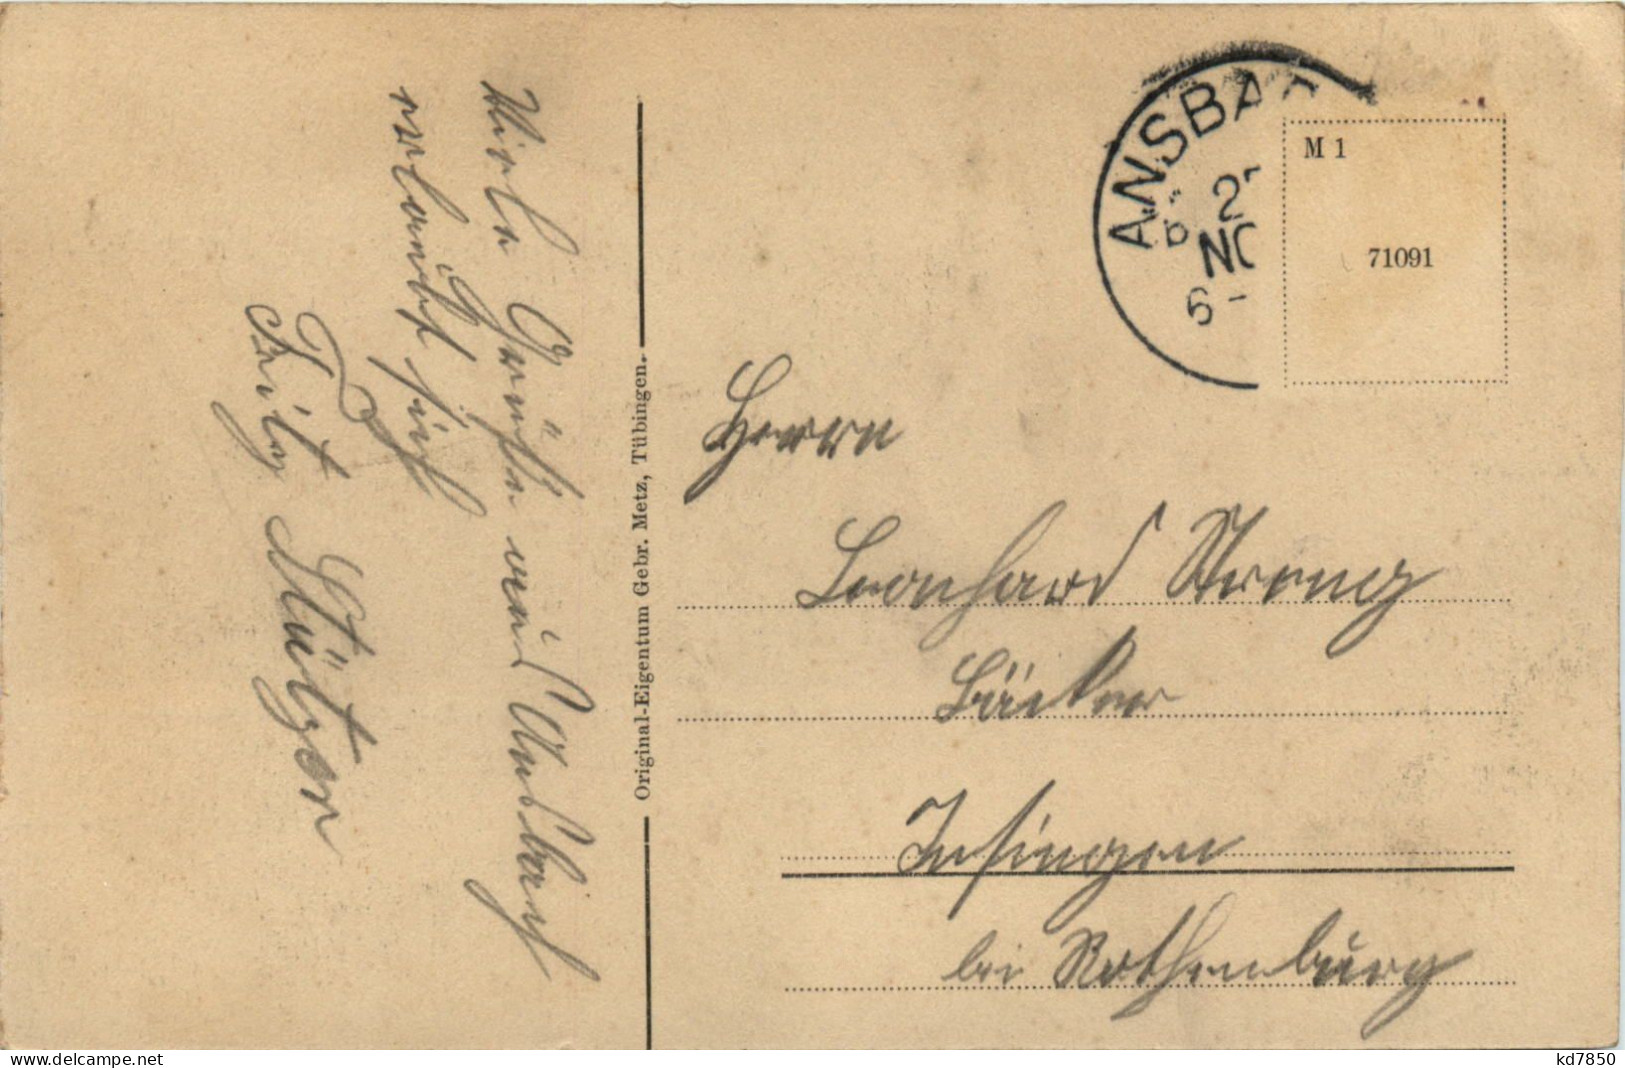 Viele Grüße aus Ansbach
erlaubt sich
Fritz Stützer
Original-Eigentum Gebr. Metz, Tübingen.
ANSBA
NO
M 1
71091
Herrn
Leonhard Streng
Bäcker
Insingen
bei Rothenburg
www.delcampe.net
kd7850